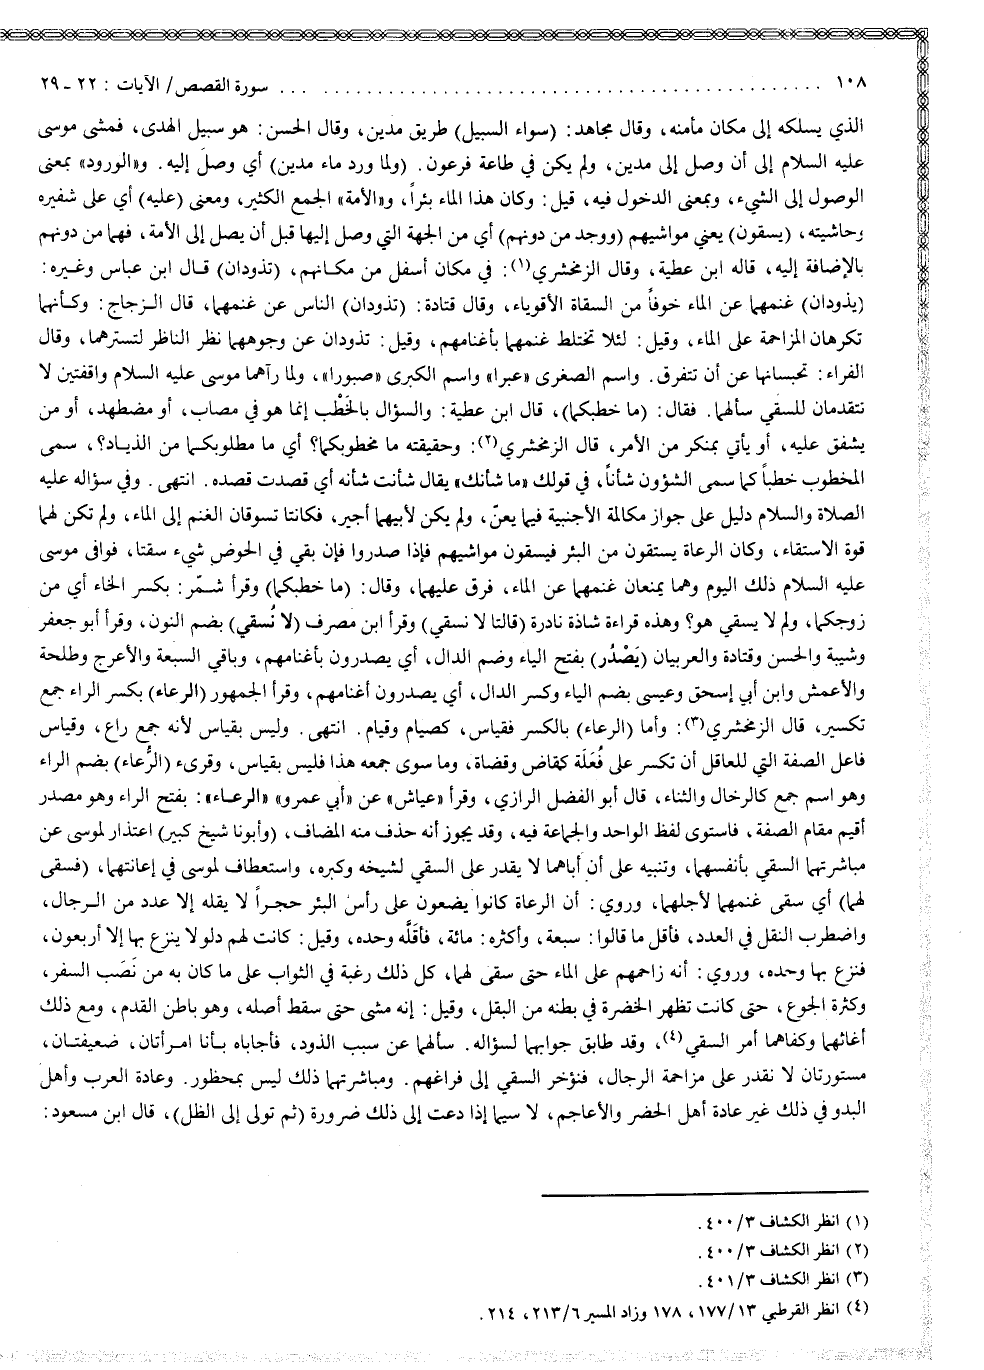 ١٠٨ ............................................ سورة القصص/ الآيات : ٢٢ - ٢٩
الذي يسلكه إلى مكان مأمنه، وقال مجاهد: (سواء السبيل) طريق مدين، وقال الحسن: هو سبيل الهدى، فمشى موسى
عليه السلام إلى أن وصل إلى مدين، ولم يكن في طاعة فرعون. (ولما ورد ماء مدين) أي وصل إليه. و«الورود» بمعنى
الوصول إلى الشيء، وبمعنى الدخول فيه، قيل: وكان هذا الماء بئراً، و«الأمة» الجمع الكثير، ومعنى (عليه) أي على شفيره
وحاشيته، (يسقون) يعني مواشيهم (ووجد من دونهم) أي من الجهة التي وصل إليها قبل أن يصل إلى الأمة، فهما من دونهم
بالإضافة إليه، قاله ابن عطية، وقال الزمخشري(١): في مكان أسفل من مكانهم، (تذودان) قال ابن عباس وغيره:
(يذودان) غنمهما عن الماء خوفاً من السقاة الأقوياء، وقال قتادة: (تذودان) الناس عن غنمهما، قال الزجاج: وكأنهما
تكرهان المزاحمة على الماء، وقيل: لئلا تختلط غنمهما بأغنامهم، وقيل: تذودان عن وجوههما نظر الناظر لتسترهما، وقال
الفراء: تحبسانها عن أن تتفرق. واسم الصغرى «عبرا» واسم الكبرى «صبورا»، ولما رآهما موسى عليه السلام واقفتين لا
تتقدمان للسقي سألهما. فقال: (ما خطبكما)، قال ابن عطية: والسؤال بالخَطْب إنما هو في مصاب، أو مضطهد، أو من
يشفق عليه، أو يأتي بمنكر من الأمر، قال الزمخشري(٢): وحقيقته ما مخطوبكما؟ أي ما مطلوبكما من الذياد؟، سمى
المخطوب خطباً كما سمى الشؤون شأناً، في قولك «ما شأنك» يقال شأنت شأنه أي قصدت قصده. انتهى. وفي سؤاله عليه
الصلاة والسلام دليل على جواز مكالمة الأجنبية فيما يعنّ، ولم يكن لأبيهما أجير، فكانتا تسوقان الغنم إلى الماء، ولم تكن لهما
قوة الاستقاء، وكان الرعاة يستقون من البئر فيسقون مواشيهم فإذا صدروا فإن بقي في الحوض شيء سقتا، فوافى موسى
عليه السلام ذلك اليوم وهما يمنعان غنمهما عن الماء، فرق عليهما، وقال: (ما خطبكما) وقرأ شمّر: بكسر الخاء أي من
زوجكما، ولم لا يسقي هو؟ وهذه قراءة شاذة نادرة (قالتا لا نسقي) وقرأ ابن مصرف (لا نُسقي) بضم النون، وقرأ أبو جعفر
وشيبة والحسن وقتادة والعربيان (يَصْدُر) بفتح الياء وضم الدال، أي يصدرون بأغنامهم، وباقي السبعة والأعرج وطلحة
والأعمش وابن أبي إسحق وعيسى بضم الياء وكسر الدال، أي يصدرون أغنامهم، وقرأ الجمهور (الرعاء) بكسر الراء جمع
تكسير، قال الزمخشري(٣): وأما (الرعاء) بالكسر فقياس، كصيام وقيام. انتهى. وليس بقياس لأنه جمع راع، وقياس
فاعل الصفة التي للعاقل أن تكسر على فُعَلَة كقاض وقضاة، وما سوى جمعه هذا فليس بقياس، وقرىء (الرُّعاء) بضم الراء
وهو اسم جمع كالرخال والثناء، قال أبو الفضل الرازي، وقرأ «عياش» عن «أبي عمرو» «الرعاء»: بفتح الراء وهو مصدر
أقيم مقام الصفة، فاستوى لفظ الواحد والجماعة فيه، وقد يجوز أنه حذف منه المضاف، (وأبونا شيخ كبير) اعتذار لموسى عن
مباشرتهما السقي بأنفسهما، وتنبيه على أن أباهما لا يقدر على السقي لشيخه وكبره، واستعطاف لموسى في إعانتهما، (فسقى
لهما) أي سقى غنمهما لأجلهما، وروي: أن الرعاة كانوا يضعون على رأس البئر حجراً لا يقله إلا عدد من الرجال،
واضطرب النقل في العدد، فأقل ما قالوا: سبعة، وأكثره: مائة، فأقلَّه وحده، وقيل: كانت لهم دلو لا ينزع بها إلا أربعون،
فنزع بها وحده، وروي: أنه زاحمهم على الماء حتى سقى لهما، كل ذلك رغبة في الثواب على ما كان به من نَصَب السفر،
وكثرة الجوع، حتى كانت تظهر الخضرة في بطنه من البقل، وقيل: إنه مشى حتى سقط أصله، وهو باطن القدم، ومع ذلك
أغاثهما وكفاهما أمر السقي(٤)، وقد طابق جوابهما لسؤاله. سألهما عن سبب الذود، فأجاباه بأنا امرأتان، ضعيفتان،
مستورتان لا نقدر على مزاحمة الرجال، فنؤخر السقي إلى فراغهم. ومباشرتهما ذلك ليس بمحظور. وعادة العرب وأهل
البدو في ذلك غير عادة أهل الحضر والأعاجم، لا سيما إذا دعت إلى ذلك ضرورة (ثم تولى إلى الظل)، قال ابن مسعود:
(١) انظر الكشاف ٤٠٠/٣.
(٢) انظر الكشاف ٤٠٠/٣.
(٣) انظر الكشاف ٤٠١/٣.
(٤) انظر القرطبي ١٧٧/١٣، ١٧٨ وزاد المسير ٢١٣/٦، ٢١٤.